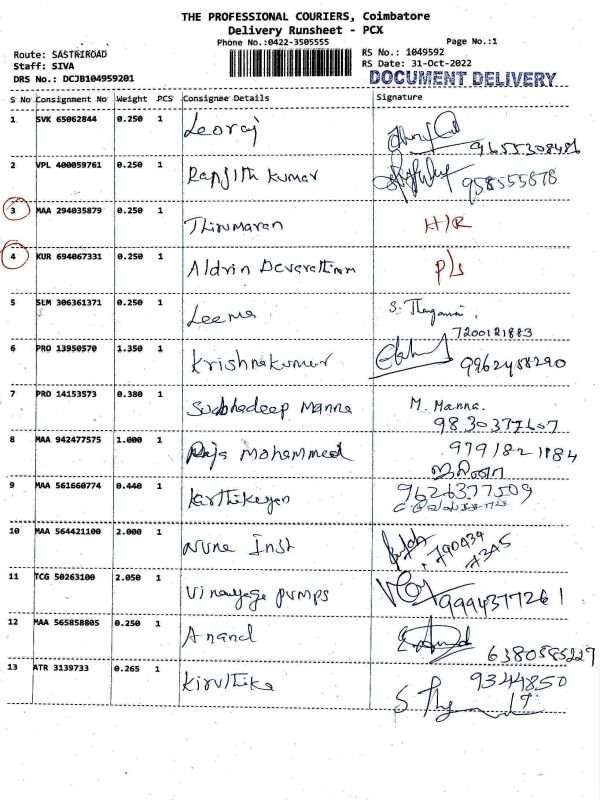 THE PROFESSIONAL COURIERS, Coimbatore
Delivery Runsheet - PCX
Phone No.:0422-3505555
Page No.:1
Route: SASTRIROAD
RS No.: 1049592
Staff: SIVA
RS Date: 31-Oct-2022
DRS No.: DCJB104959201
DOCUMENT DELIVERY
S No Consignment No Weight PCS Consignee Details Signature
1 SVK 65062844 0.250 1 Leoraj
9655308486
2 VPL 400059761 0.250 1 Ranjith Kumar
958555878
3 MAA 294035879 0.250 1 Thirumaran H/R
4 KUR 694067331 0.250 1 Aldrin Devarathinam P/s
5 SLM 306361371 0.250 1 Leema S.
7200121883
6 PRO 13950570 1.350 1 Krishnakumar
9962488290
7 PRO 14153573 0.380 1 Subhadeep Manna M. Manna.
9830377607
8 MAA 942477575 1.000 1 Raja Mohammed 9791821184
9 MAA 561660774 0.440 1 Karthikeyan 9626377509
10 MAA 564421100 2.000 1 Nune Inst
790434
7345
11 TCG 50263100 2.050 1 Vinayaga pumps
9994377261
12 MAA 565858805 0.250 1 Anand
6380585229
13 ATR 3139733 0.265 1 Kiruthika 9344850